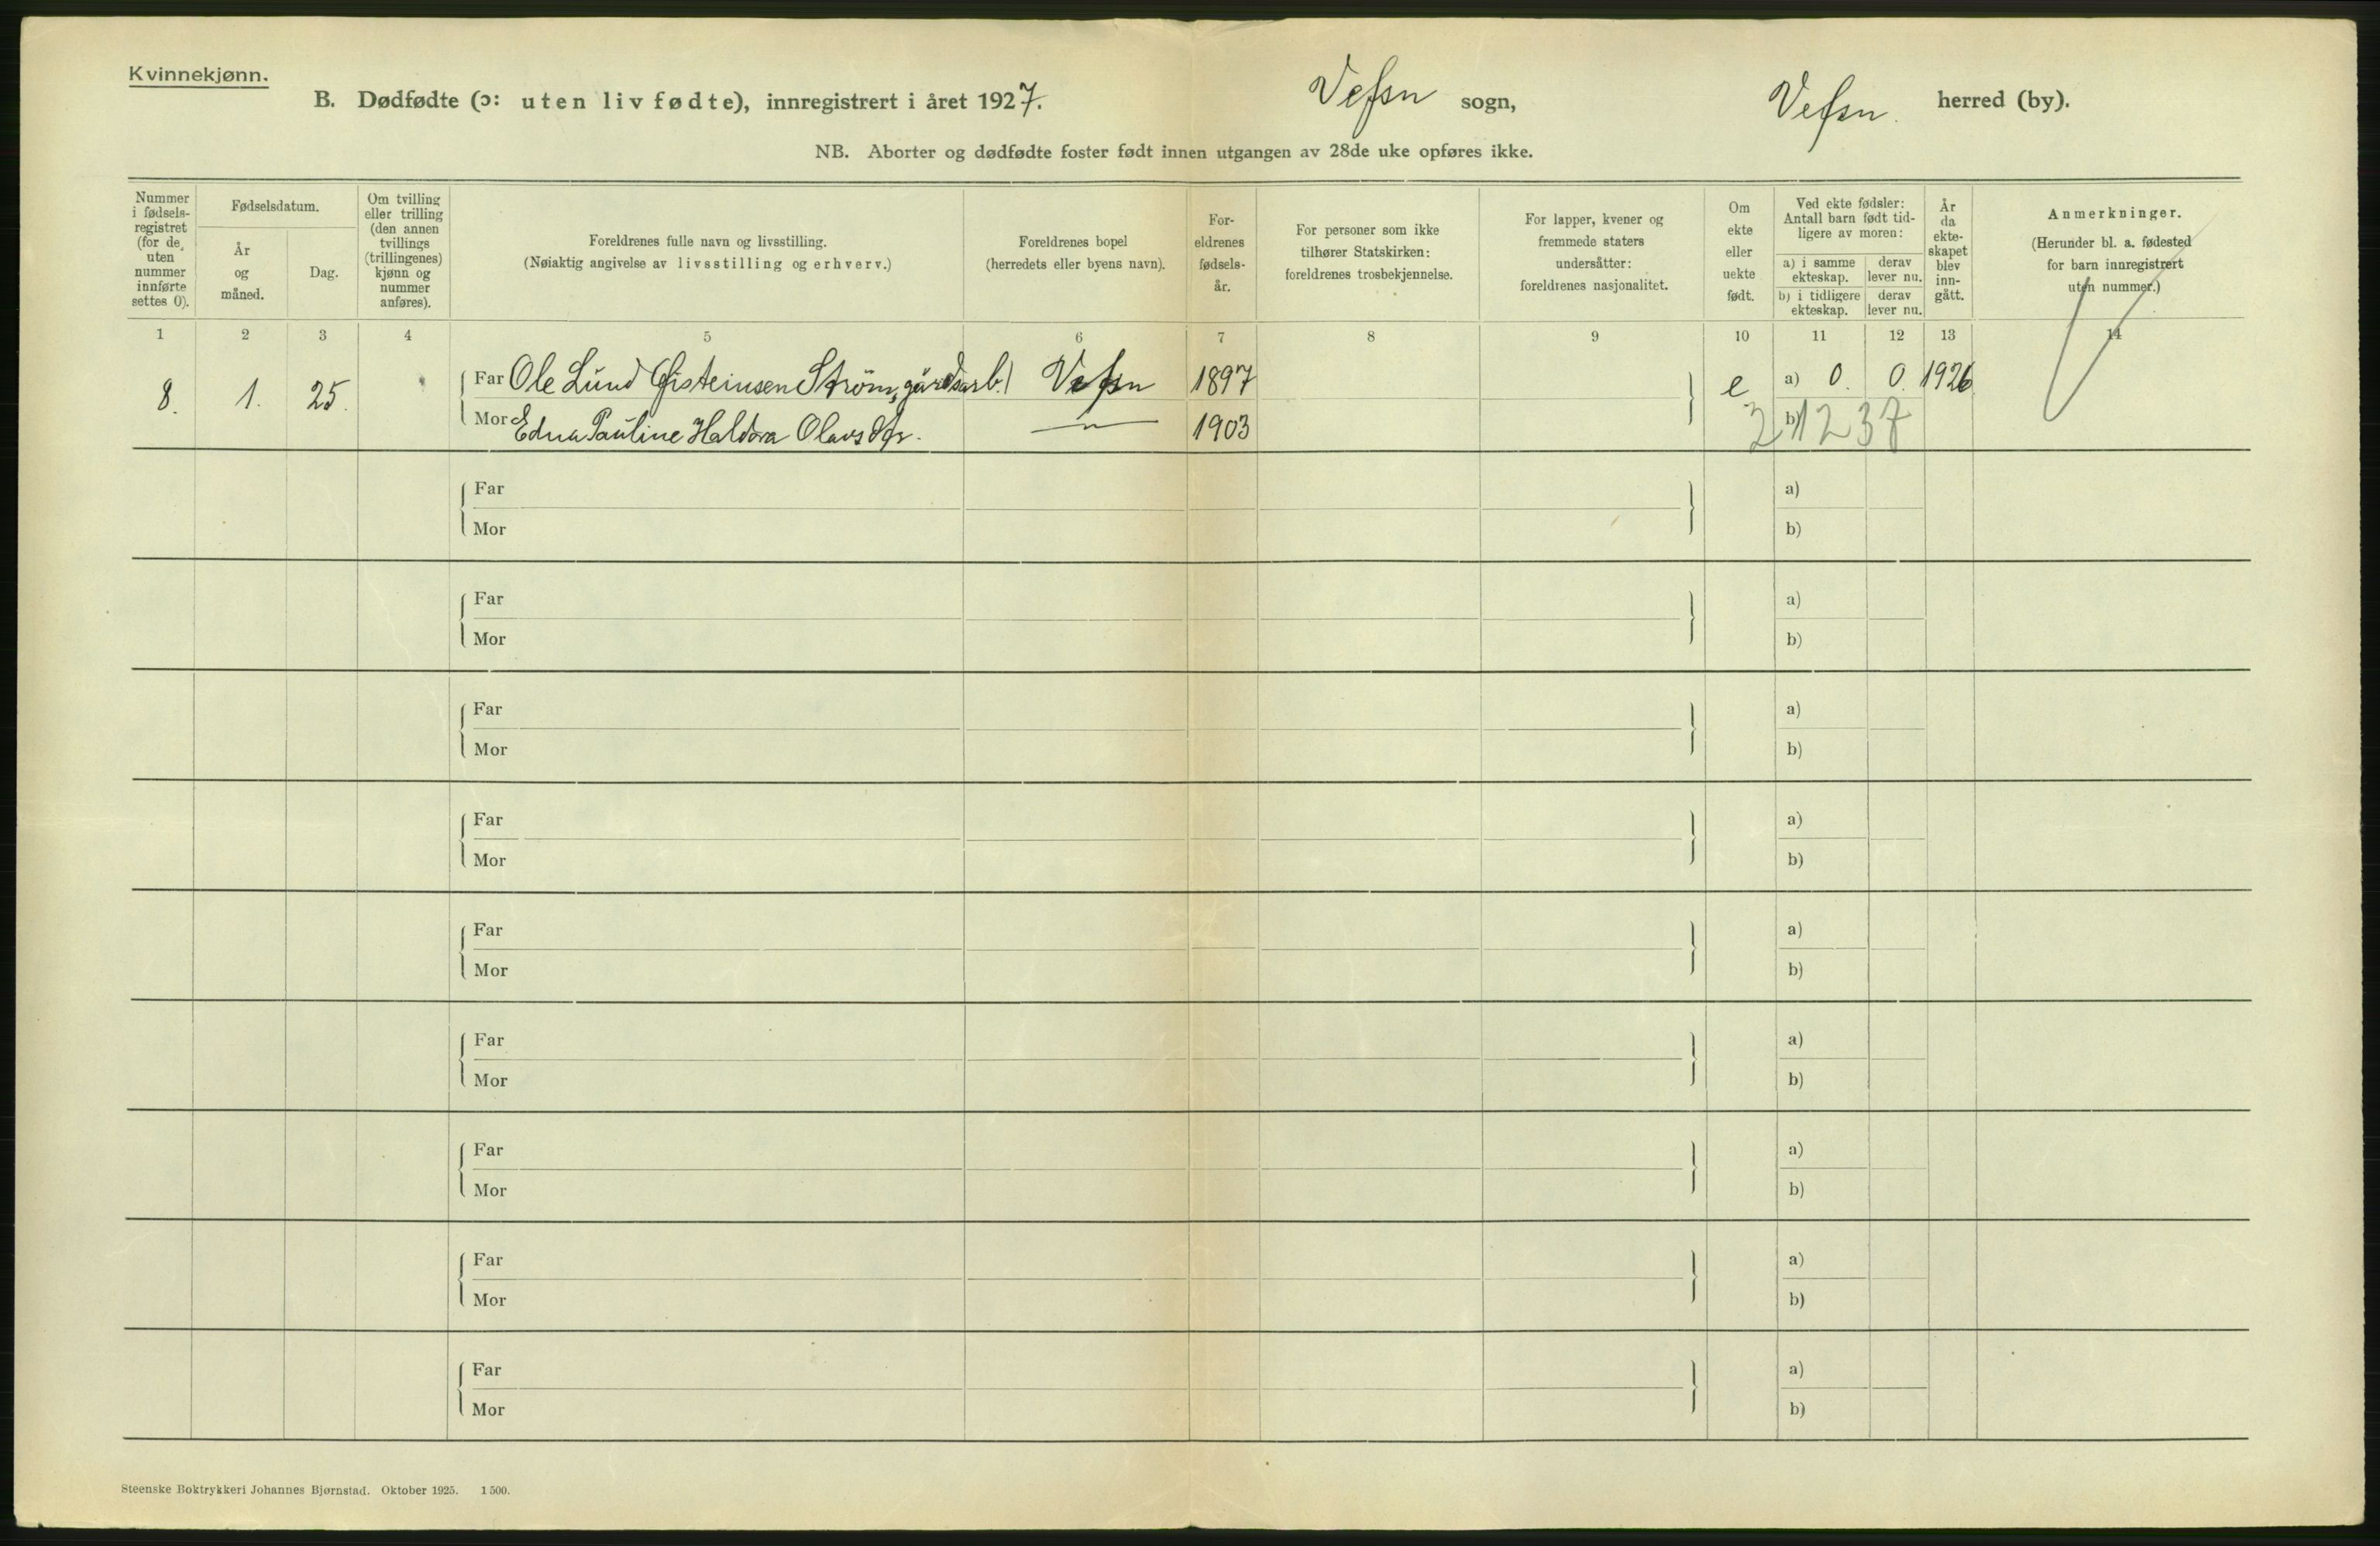 Kvinnekjønn.
B. Dødfødte (ɔ: uten liv fødte), innregistrert i året 1927. Vefsn sogn, Vefsn. herred (by).
NB. Aborter og dødfødte foster født innen utgangen av 28de uke opføres ikke.
Nummer i fødsels- registret (for de uten nummer innførte settes 0).
Fødselsdatum.
År og måned.
Dag.
Om tvilling eller trilling (den annen tvillings (trillingenes) kjønn og nummer anføres).
Foreldrenes fulle navn og livsstilling.
(Nøiaktig angivelse av livsstilling og erhverv.)
Foreldrenes bopel
(herredets eller byens navn).
For- eldrenes fødsels- år.
For personer som ikke tilhører Statskirken: foreldrenes trosbekjennelse.
For lapper, kvener og fremmede staters undersåtter: foreldrenes nasjonalitet.
Om ekte eller uekte født.
Ved ekte fødsler: Antall barn født tid- ligere av moren:
a) i samme ekteskap. derav lever nu.
b) i tidligere ekteskap. derav lever nu.
År da ekte- skapet blev inn- gått.
Anmerkninger.
(Herunder bl. a. fødested for barn innregistrert uten nummer.)
1 2 3 4 5 6 7 8 9 10 11 12 13 14
8. 1. 25. Far Ole Lund Øisteinsen Strøm, gårdsarb. Vefsn 1897 e a) 0. 0. 1926
Mor Edna Pauline Haldora Olavsdtr. — " — 1903 b) 21237
Far a)
Mor b)
Far a)
Mor b)
Far a)
Mor b)
Far a)
Mor b)
Far a)
Mor b)
Far a)
Mor b)
Far a)
Mor b)
Far a)
Mor b)
Far a)
Mor b)
Steenske Boktrykkeri Johannes Bjørnstad. Oktober 1925. 1500.